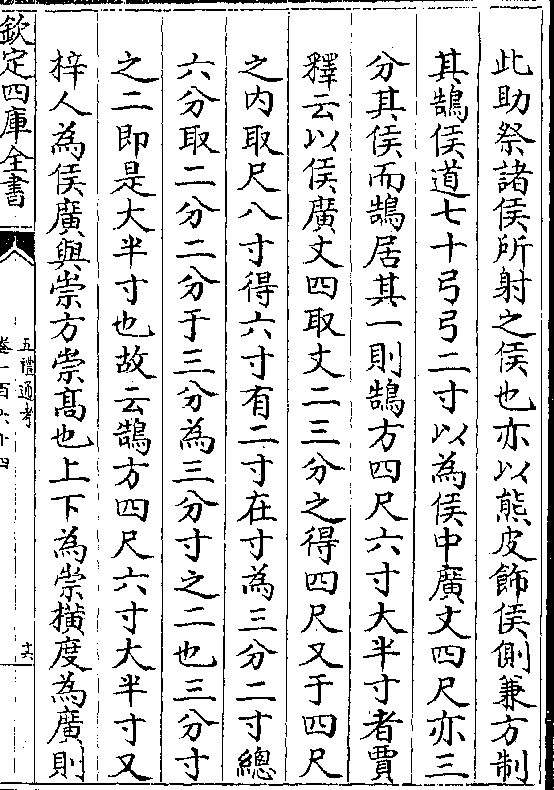 此助祭諸侯所射之侯也亦以熊皮飾侯側兼方制
其鵠侯道七十弓弓二寸以為侯中廣丈四尺亦三
分其侯而鵠居其一則鵠方四尺六寸大半寸者賈
釋云以侯廣丈四取丈二三分之得四尺又于四尺
之内取尺八寸得六寸有二寸在寸為三分二寸總
六分取二分二分于三分為三分寸之二也三分寸
之二即是大半寸也故云鵠方四尺六寸大半寸又
梓人為侯廣與崇方崇髙也上下為崇横度為廣則
欽定四庫全書
五禮通考
卷一百六十四
十六